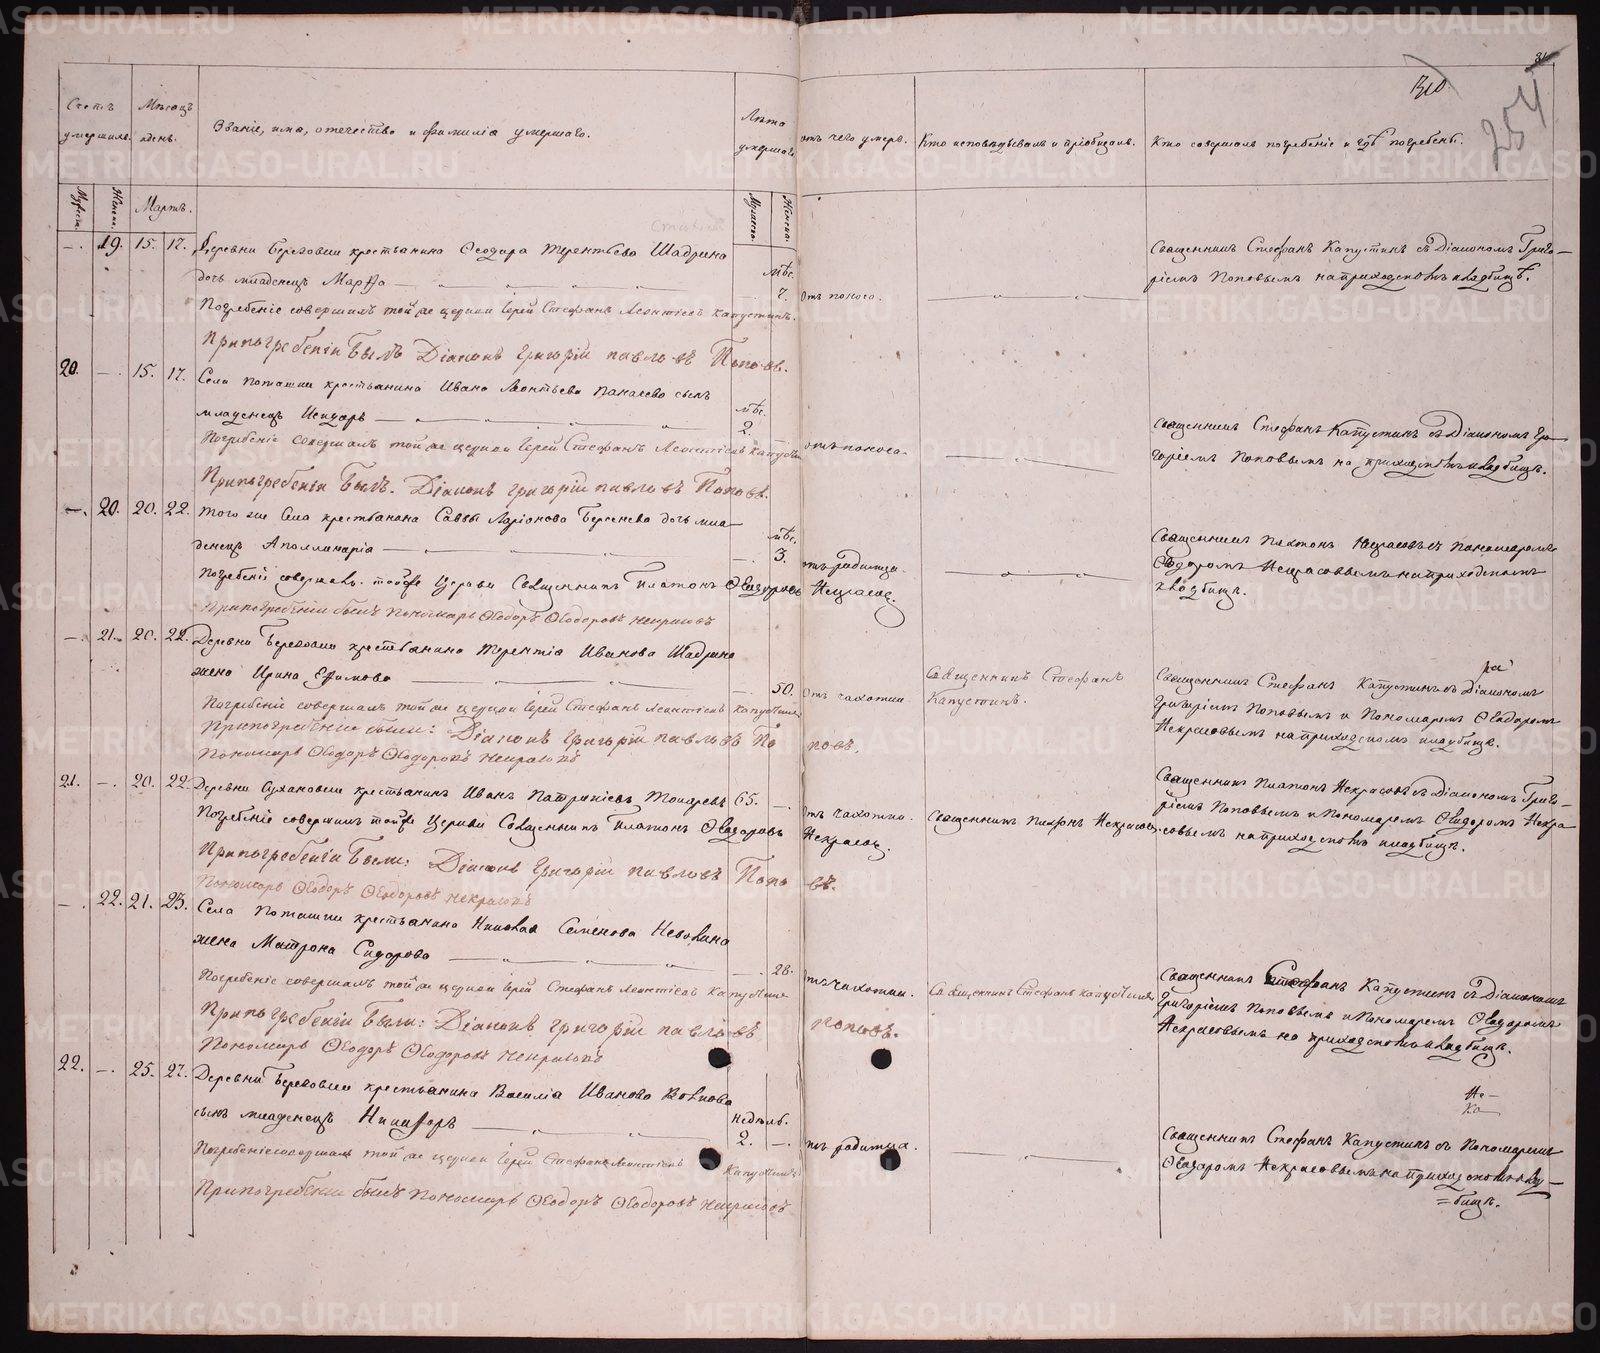 31
130
254
Счетъ умершихъ.
Мѣсяцъ и день.
Званіе, имя, отечество и фамилія умершаго.
Лѣта умершаго
отъ чего умеръ.
Кто исповѣдывалъ и пріобщалъ.
Кто совершалъ погребеніе и гдѣ погребенъ.
Мужеска.
Женска.
Мартъ.
Мужеска.
Женска.
—. 19. 15. 17. Деревни Береговой крестьянина Ѳеодора Терентьева Шадрина
дочь младенецъ Марѳа
мѣс.
7. отъ поноса.
Священникъ Стефанъ Капустинъ съ Діакономъ Григо-
ріемъ Поповымъ на приходскомъ кладбищѣ.
Погребеніе совершалъ той же церкви Іерей Стефанъ Леонтіевъ Капустинъ.
При погребеніи былъ Діаконъ Григорій Павловъ Поповъ.
20. —. 15. 17. Села Поташки крестьянина Ивана Леонтьева Панаева сынъ
младенецъ Исидоръ
мѣс.
2. отъ поноса.
Священникъ Стефанъ Капустинъ съ Діакономъ Гри-
горіемъ Поповымъ на приходскомъ кладбищѣ.
Погребеніе совершалъ той же церкви Іерей Стефанъ Леонтіевъ Капустинъ
При погребеніи былъ. Діаконъ Григорій Павловъ Поповъ.
—. 20. 20. 22. Того же Села крестьянина Саввы Ларіонова Берсенева дочь мла-
денецъ Аполлинарія
мѣс.
3. отъ родимца.
Священникъ Платонъ Некрасовъ съ Пономаремъ
Ѳеодоромъ Некрасовымъ на приходскомъ
кладбищѣ.
Погребеніе совершалъ той же Церкви Священникъ Платонъ Ѳеодоровъ Некрасовъ.
При погребеніи былъ Пономарь Ѳеодоръ Ѳеодоровъ Некрасовъ
—. 21. 20. 22. Деревни Береговой крестьянина Терентія Иванова Шадрина
жена Ирина Ефимова
50. отъ чахотки
Священникъ Стефанъ
Капустинъ.
Священникъ Стефанъ Капустинъ съ Діакономъ
Григоріемъ Поповымъ и Пономаремъ Ѳеодоромъ
Некрасовымъ на приходскомъ кладбищѣ.
Погребеніе совершалъ той же церкви Іерей Стефанъ Леонтіевъ Капустинъ
При погребеніи были: Діаконъ Григорій Павловъ Поповъ.
Пономарь Ѳеодоръ Ѳеодоровъ Некрасовъ
21. —. 20. 22. Деревни Сухановки крестьянинъ Иванъ Патрикіевъ Токаревъ 65. —. отъ чахотки.
Священникъ Платонъ Некрасовъ.
Священникъ Платонъ Некрасовъ съ Діакономъ Григо-
ріемъ Поповымъ и Пономаремъ Ѳеодоромъ Некра
совымъ на приходскомъ кладбищѣ.
Погребеніе совершалъ той же Церкви Священникъ Платонъ Ѳеодоровъ Некрасовъ.
При погребеніи были: Діаконъ Григорій Павловъ Поповъ.
Пономарь Ѳеодоръ Ѳеодоровъ Некрасовъ
—. 22. 21. 23. Села Поташки крестьянина Николая Семенова Неволина
жена Матрона Сидорова
28. отъ чахотки.
Священникъ Стефанъ Капустинъ
Священникъ Стефанъ Капустинъ съ Діакономъ
Григоріемъ Поповымъ и Пономаремъ Ѳеодоромъ
Некрасовымъ на приходскомъ кладбищѣ.
Погребеніе совершалъ той же церкви Іерей Стефанъ Леонтіевъ Капустинъ
При погребеніи были: Діаконъ Григорій Павловъ Поповъ.
Пономарь Ѳеодоръ Ѳеодоровъ Некрасовъ
22. —. 25. 27. Деревни Береговой крестьянина Василія Иванова Волкова
сынъ младенецъ Никифоръ
недѣль.
2. —. отъ родимца.
Священникъ Стефанъ Капустинъ съ Пономаремъ
Ѳеодоромъ Некрасовымъ на приходскомъ клад-
=бищѣ.
Погребеніе совершалъ той же церкви Іерей Стефанъ Леонтіевъ Капустинъ
При погребеніи былъ Пономарь Ѳеодоръ Ѳеодоровъ Некрасовъ
METRIKI.GASO-URAL.RU